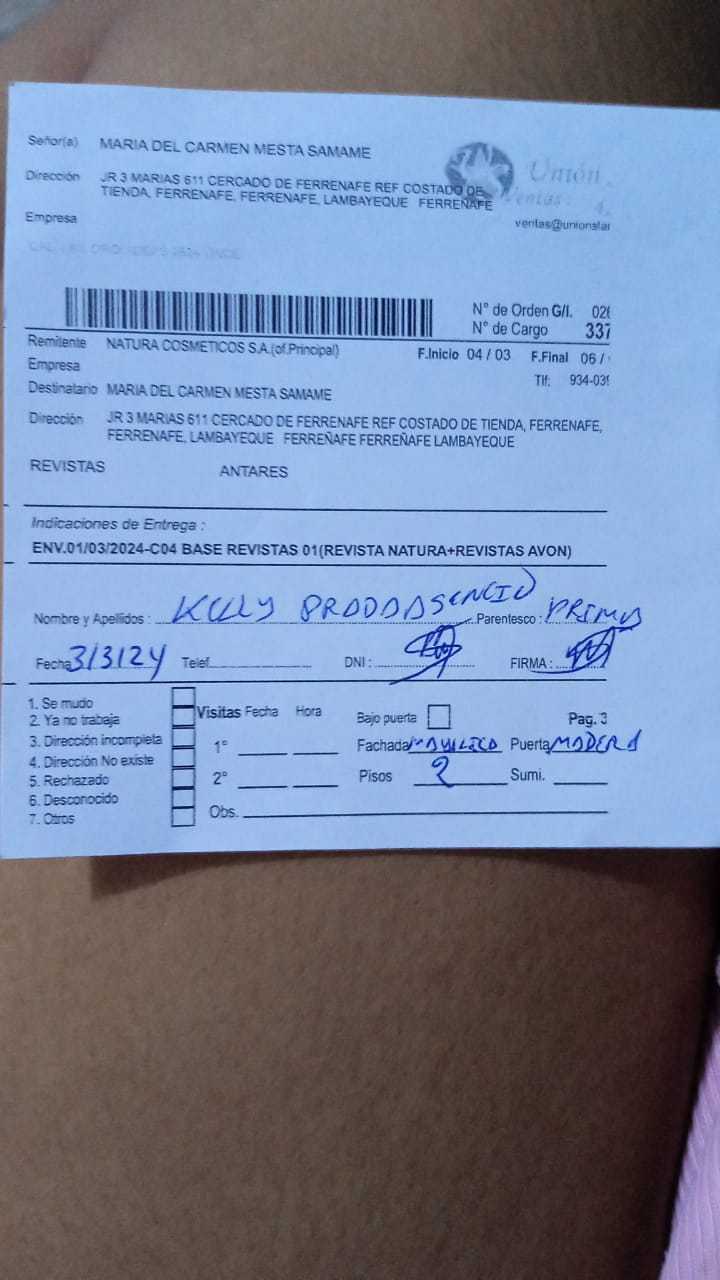 Señor(a) MARIA DEL CARMEN MESTA SAMAME
Dirección JR 3 MARIAS 611 CERCADO DE FERRENAFE REF COSTADO DE
TIENDA, FERRENAFE, FERRENAFE, LAMBAYEQUE FERREÑAFE
Empresa
Unión
Ventas:
ventas@unionstar
N° de Orden G/I. 026
N° de Cargo 337
Remitente NATURA COSMETICOS S.A.(of.Principal)
F.Inicio 04 / 03 F.Final 06 /
Empresa
Tlf: 934-039
Destinatario MARIA DEL CARMEN MESTA SAMAME
Dirección JR 3 MARIAS 611 CERCADO DE FERRENAFE REF COSTADO DE TIENDA, FERRENAFE,
FERRENAFE, LAMBAYEQUE FERREÑAFE FERREÑAFE LAMBAYEQUE
REVISTAS ANTARES
Indicaciones de Entrega :
ENV.01/03/2024-C04 BASE REVISTAS 01(REVISTA NATURA+REVISTAS AVON)
Nombre y Apellidos : Parentesco : PRIMA
Fecha 3/3/24 Telef. DNI : FIRMA :
1. Se mudo
2. Ya no trabaja
3. Dirección incompleta
4. Dirección No existe
5. Rechazado
6. Desconocido
7. Otros
Visitas Fecha Hora
1°
2°
Obs.
Bajo puerta Pag. 3
Fachada Puerta MADERA
Pisos 2 Sumi.